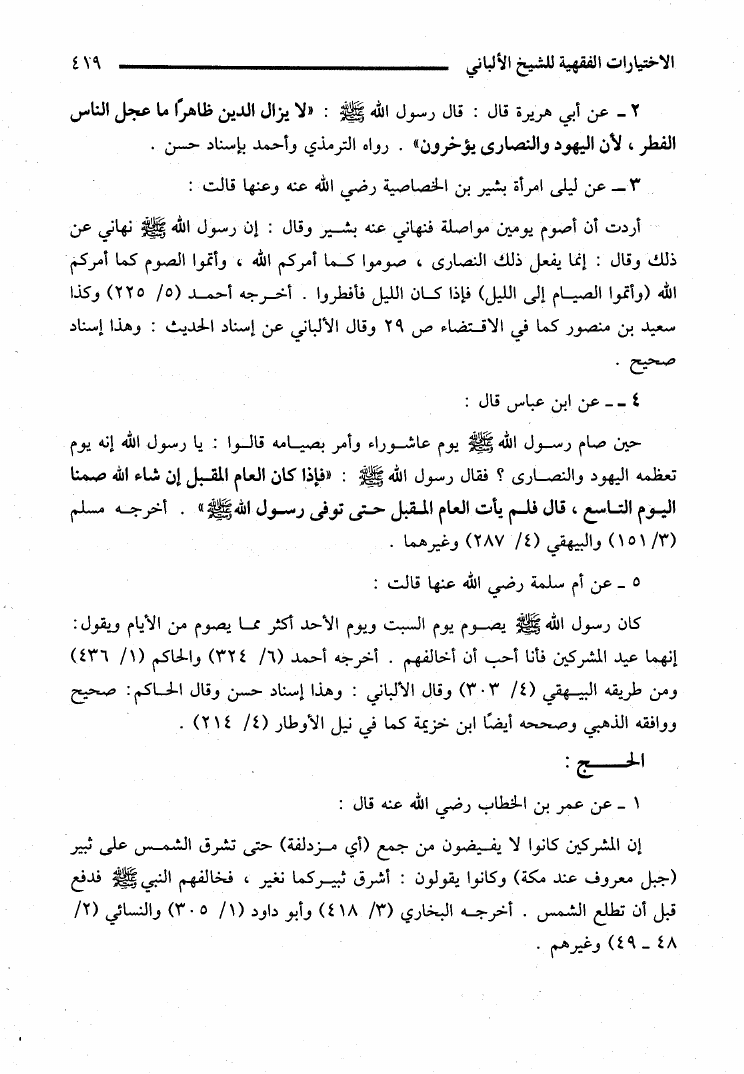 الاختيارات الفقهية للشيخ الألباني ٤١٩
٢ ـ عن أبي هريرة قال : قال رسول الله ﷺ : «لا يزال الدين ظاهرًا ما عجل الناس
الفطر ، لأن اليهود والنصارى يؤخرون» . رواه الترمذي وأحمد بإسناد حسن .
٣ ـ عن ليلى امرأة بشير بن الخصاصية رضي الله عنه وعنها قالت :
أردت أن أصوم يومين مواصلة فنهاني عنه بشير وقال : إن رسول الله ﷺ نهاني عن
ذلك وقال : إنما يفعل ذلك النصارى ، صوموا كما أمركم الله ، وأتموا الصوم كما أمركم
الله (وأتموا الصيام إلى الليل) فإذا كان الليل فأفطروا . أخرجه أحمد (٥/ ٢٢٥) وكذا
سعيد بن منصور كما في الاقتضاء ص ٢٩ وقال الألباني عن إسناد الحديث : وهذا إسناد
صحيح .
٤ ـ ـ عن ابن عباس قال :
حين صام رسول الله ﷺ يوم عاشوراء وأمر بصيامه قالوا : يا رسول الله إنه يوم
تعظمه اليهود والنصارى ؟ فقال رسول الله ﷺ : «فإذا كان العام المقبل إن شاء الله صمنا
اليوم التاسع ، قال فلم يأت العام المقبل حتى توفى رسول الله ﷺ» . أخرجه مسلم
(٣/ ١٥١) والبيهقي (٤/ ٢٨٧) وغيرهما .
٥ ـ عن أم سلمة رضي الله عنها قالت :
كان رسول الله ﷺ يصوم يوم السبت ويوم الأحد أكثر مما يصوم من الأيام ويقول:
إنهما عيد المشركين فأنا أحب أن أخالفهم . أخرجه أحمد (٦/ ٣٢٤) والحاكم (١/ ٤٣٦)
ومن طريقه البيهقي (٤/ ٣٠٣) وقال الألباني : وهذا إسناد حسن وقال الحاكم: صحيح
ووافقه الذهبي وصححه أيضًا ابن خزيمة كما في نيل الأوطار (٤/ ٢١٤) .
الحـــج :
١ ـ عن عمر بن الخطاب رضي الله عنه قال :
إن المشركين كانوا لا يفيضون من جمع (أي مزدلفة) حتى تشرق الشمس على ثبير
(جبل معروف عند مكة) وكانوا يقولون : أشرق ثبير كما نغير ، فخالفهم النبي ﷺ فدفع
قبل أن تطلع الشمس . أخرجه البخاري (٣/ ٤١٨) وأبو داود (١/ ٣٠٥) والنسائي (٢/
٤٨ ـ ٤٩) وغيرهم .